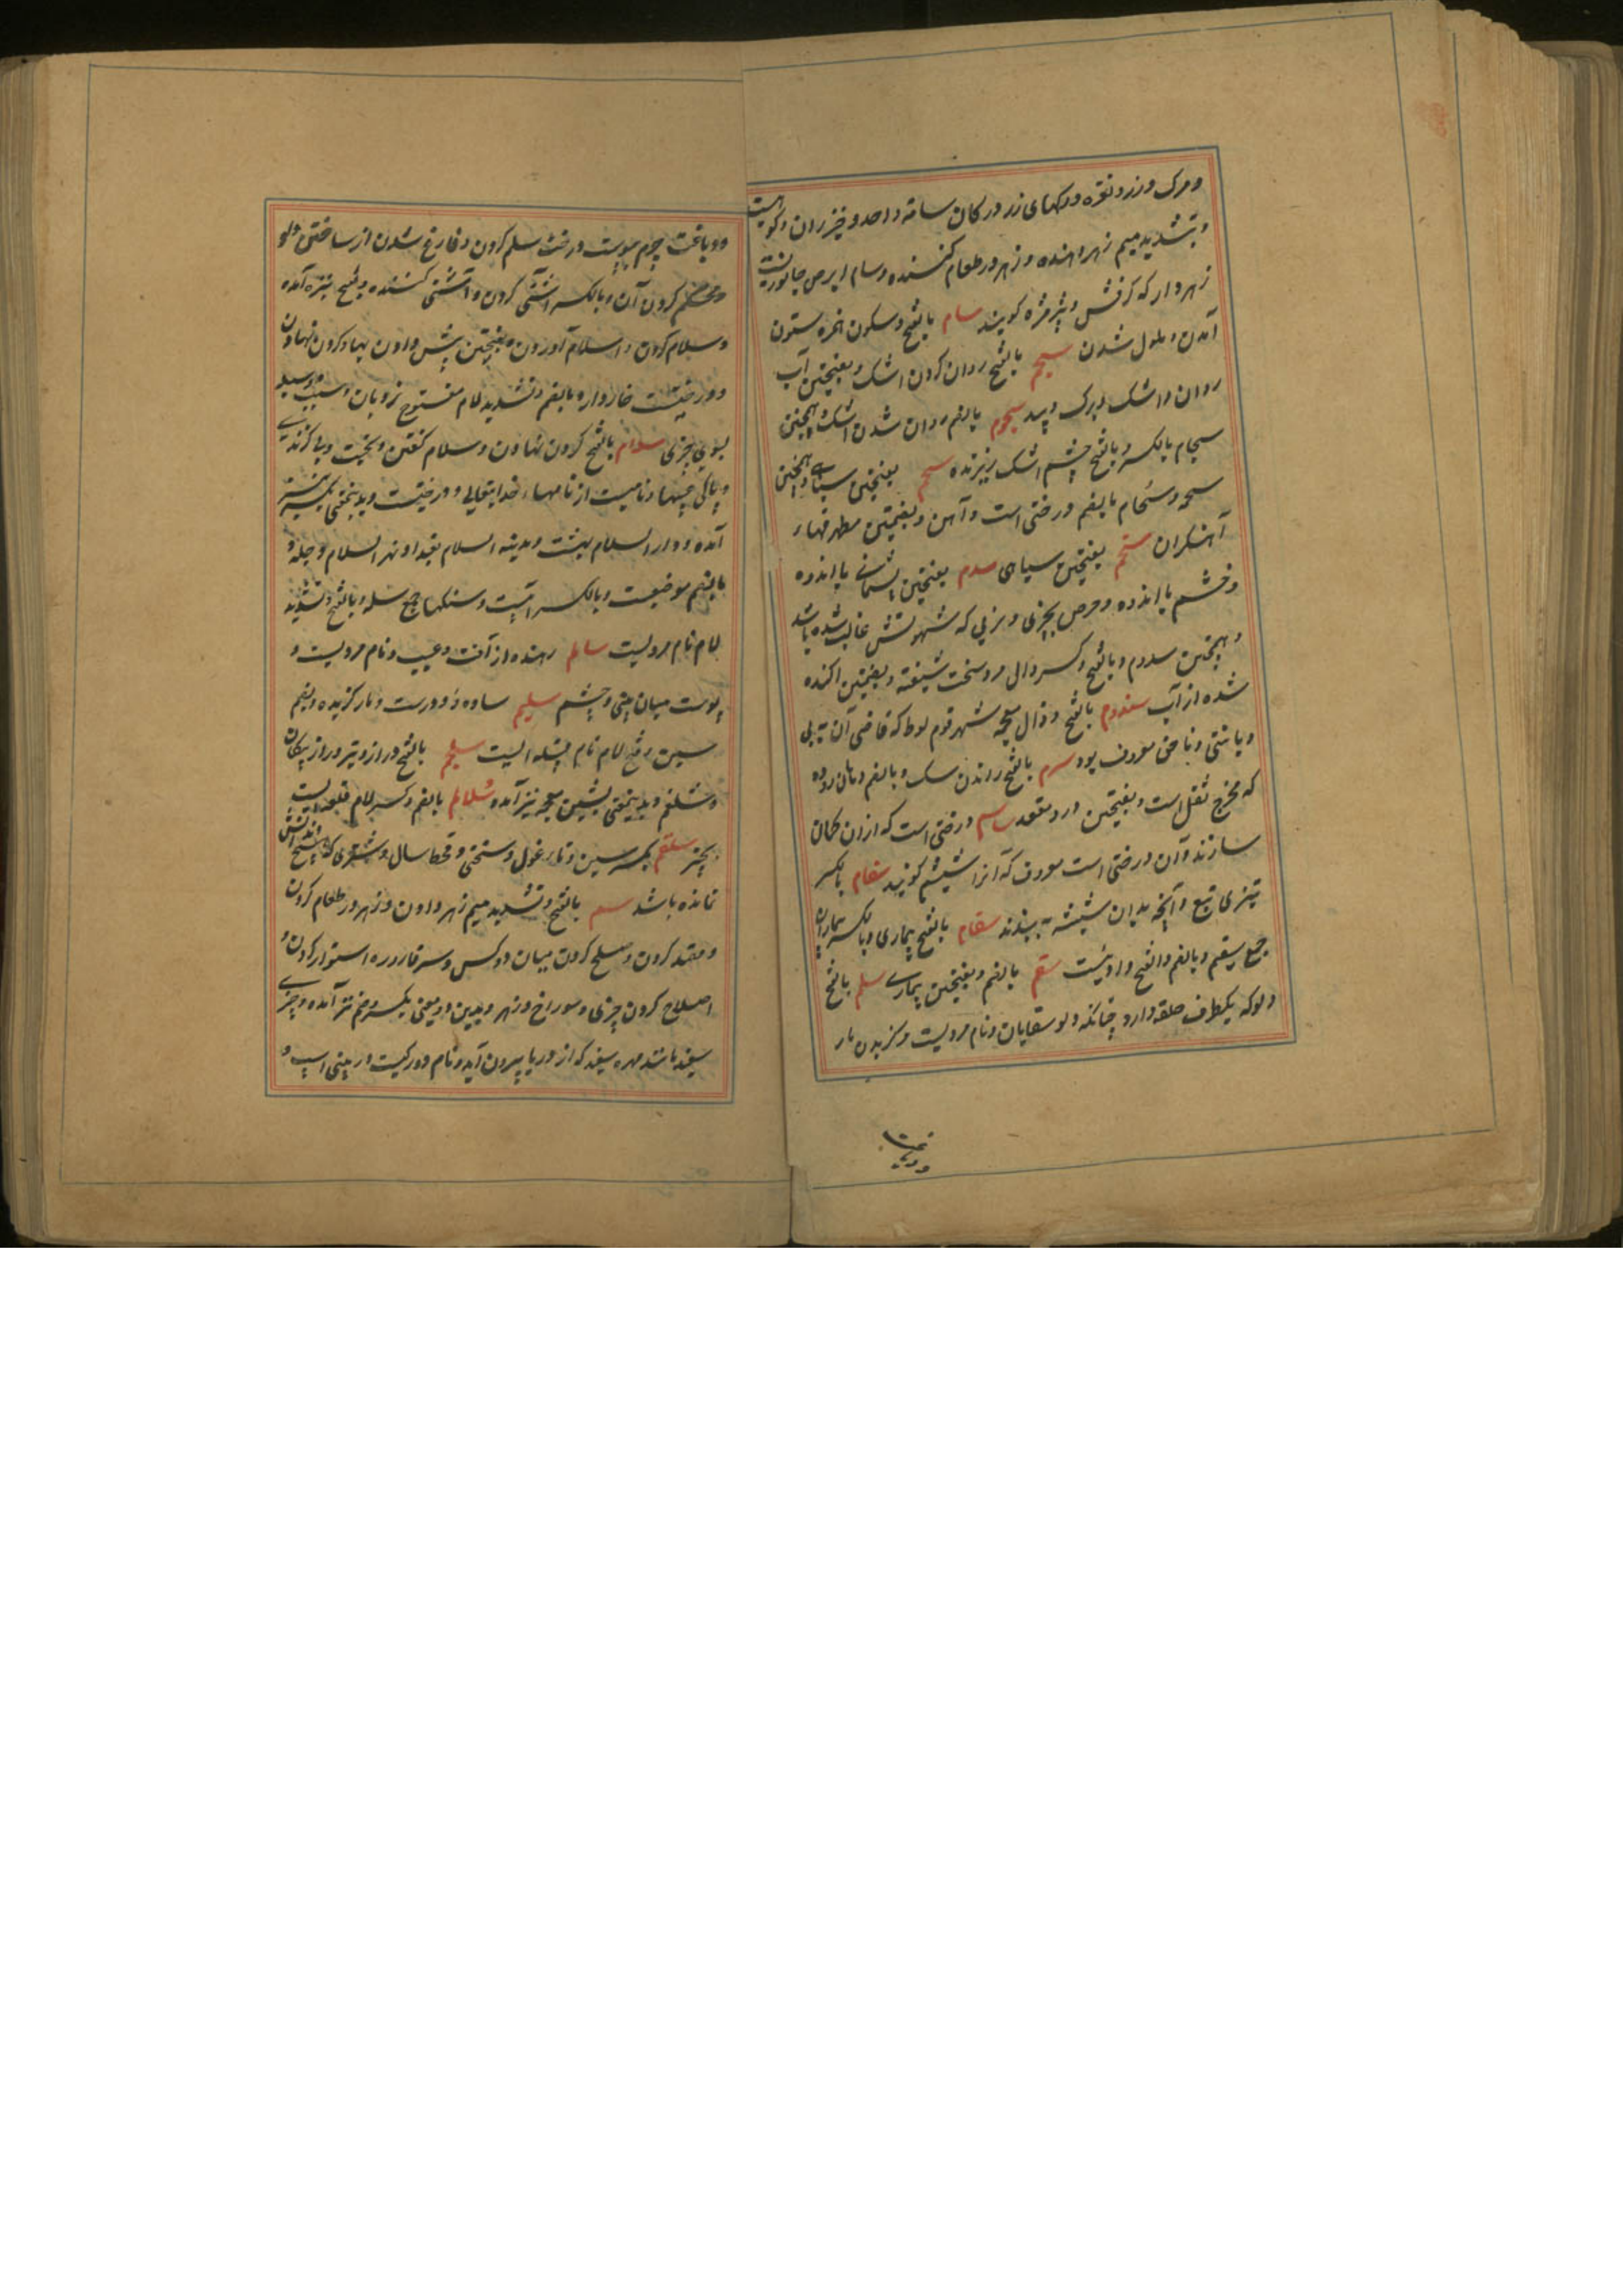 ومرک و زر و نقره و رکهای زر در کان سامة واحد و خیزران و کوهیست
و بتشدید میم زهر دهنده و زهر در طعام کننده و سام ابرص جانوریست
زهردار که کرفش و پژمژه کویند سام بالفتح و سکون همزه ستون
آمدن و ملول شدن سجم بالفتح روان کردن اشک و بفتحتین آب
روان و اشک و برک بید سجوم بالضم روان شدن اشک و همچنین
سجام بالکسر و بالفتح چشم اشک ریزنده سحم بفتحتین سیاهی و همچنین
سحمه و سحام بالضم درختی است و آهن و بضمتین مطرقهاء
آهنکران سخم بفتحتین سیاهی سدم بفتحتین پشیمانی با اندوه
و خشم با اندوه و حرص بچیزی و نری که شهوتش غالب شده باشد
و همچنین سدوم و بالفتح و کسر دال مرد سخت شیفته و بضمتین اکنده
شده از آب سدوم بالفتح و ذال معجمه شهر قوم لوط که قاضی آن به بی
دیانتی و ناحق معروف بود سرم بالفتح راندن سک و بالضم دهان روده
که مخرج ثفل است و بفتحتین درد مقعد ساسم درختی است که ازان کمان
سازند و آن درختی است معروف که آنرا شیشم کویند سطام بالکسر
تیزی تیغ و آنچه بدان شیشه به بندند سقام بالفتح بیماری و بالکسر بیماران
جمع سقیم و بالضم و الفتح وادیست سقم بالضم و بفتحتین بیماری سلم بالفتح
دلو که یکطرف حلقه دارد چنانکه دلو سقایان و نام مردیست و کزیدن مار
و دباغت چرم بپوست درخت سلم کردن و فارغ شدن از ساختن دلو
و محکم کردن آن و بالکسر آشتی کردن و آشتی کننده و بفتح نیز آمده
و سلام کردن و اسلام آوردن و بفتحتین پیش دادن بها و کردن نهادن
و درختیست خاردار و بالضم و تشدید لام مفتوح نردبان و سبب و وسیله
بسوی چیزی سلام بالفتح کردن نهادن و سلام کفتن و تحیت و بی کزندی
و پاکی از عیبها و نامیست از نامهاء خدایتعالی و درختیست و بدینمعنی بکسر نیز
آمده و دارالسلام بهشت و مدینة السلام بغداد و نهر السلام دجله و
بالضم موضعیست و بالکسر آبیست و سنکها جمع سلمه و بالفتح و تشدید
لام نام مردیست سالم رهنده از آفت و عیب و نام مردیست و
پوست میان بینی و چشم سلیم ساده دل و درست و مار کزیده و بضم
سین و فتح لام نام قبیله ایست سلجم بالفتح دراز و تیر دراز پیکان
و شلغم و بدینمعنی بشین معجمه نیز آمده سلالم بالضم و کسر لام قلعه ایست
بخیبر سلقم بکسر سین و تاء غول و سختی و قحط سال و شتری که هیچ دندانش
نمانده باشد سم بالفتح و تشدید میم زهر دادن و زهر در طعام کردن
و قصد کردن و صلح کردن میان دو کس و سر قاروره استوار کردن و
اصلاح کردن چیزی و سوراخ و زهر و بدین دو معنی بکسر و ضم نیز آمده و چیزی
سفید مانند مهره سفید که از دریا بیرون آید و نام دو رکیست در بینی اسپ و